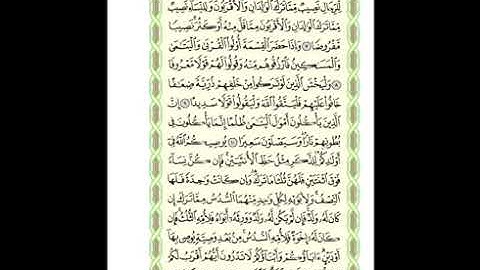 لِّلرِّجَالِ نَصِيبٌ مِّمَّا تَرَكَ ٱلْوَٰلِدَانِ وَٱلْأَقْرَبُونَ وَلِلنِّسَآءِ نَصِيبٌ
مِّمَّا تَرَكَ ٱلْوَٰلِدَانِ وَٱلْأَقْرَبُونَ مِمَّا قَلَّ مِنْهُ أَوْ كَثُرَ نَصِيبًا
مَّفْرُوضًا ٧ وَإِذَا حَضَرَ ٱلْقِسْمَةَ أُو۟لُوا۟ ٱلْقُرْبَىٰ وَٱلْيَتَٰمَىٰ
وَٱلْمَسَٰكِينُ فَٱرْزُقُوهُم مِّنْهُ وَقُولُوا۟ لَهُمْ قَوْلًا مَّعْرُوفًا
٨ وَلْيَخْشَ ٱلَّذِينَ لَوْ تَرَكُوا۟ مِنْ خَلْفِهِمْ ذُرِّيَّةً ضِعَٰفًا
خَافُوا۟ عَلَيْهِمْ فَلْيَتَّقُوا۟ ٱللَّهَ وَلْيَقُولُوا۟ قَوْلًا سَدِيدًا ٩ إِنَّ
ٱلَّذِينَ يَأْكُلُونَ أَمْوَٰلَ ٱلْيَتَٰمَىٰ ظُلْمًا إِنَّمَا يَأْكُلُونَ فِى
بُطُونِهِمْ نَارًا وَسَيَصْلَوْنَ سَعِيرًا ١٠ يُوصِيكُمُ ٱللَّهُ فِىٓ
أَوْلَٰدِكُمْ لِلذَّكَرِ مِثْلُ حَظِّ ٱلْأُنثَيَيْنِ فَإِن كُنَّ نِسَآءً
فَوْقَ ٱثْنَتَيْنِ فَلَهُنَّ ثُلُثَا مَا تَرَكَ وَإِن كَانَتْ وَٰحِدَةً فَلَهَا
ٱلنِّصْفُ وَلِأَبَوَيْهِ لِكُلِّ وَٰحِدٍ مِّنْهُمَا ٱلسُّدُسُ مِمَّا تَرَكَ إِن
كَانَ لَهُۥ وَلَدٌ فَإِن لَّمْ يَكُن لَّهُۥ وَلَدٌ وَوَرِثَهُۥٓ أَبَوَاهُ فَلِأُمِّهِ ٱلثُّلُثُ فَإِن
كَانَ لَهُۥٓ إِخْوَةٌ فَلِأُمِّهِ ٱلسُّدُسُ مِنۢ بَعْدِ وَصِيَّةٍ يُوصِى بِهَآ
أَوْ دَيْنٍ ءَابَآؤُكُمْ وَأَبْنَآؤُكُمْ لَا تَدْرُونَ أَيُّهُمْ أَقْرَبُ لَكُمْ